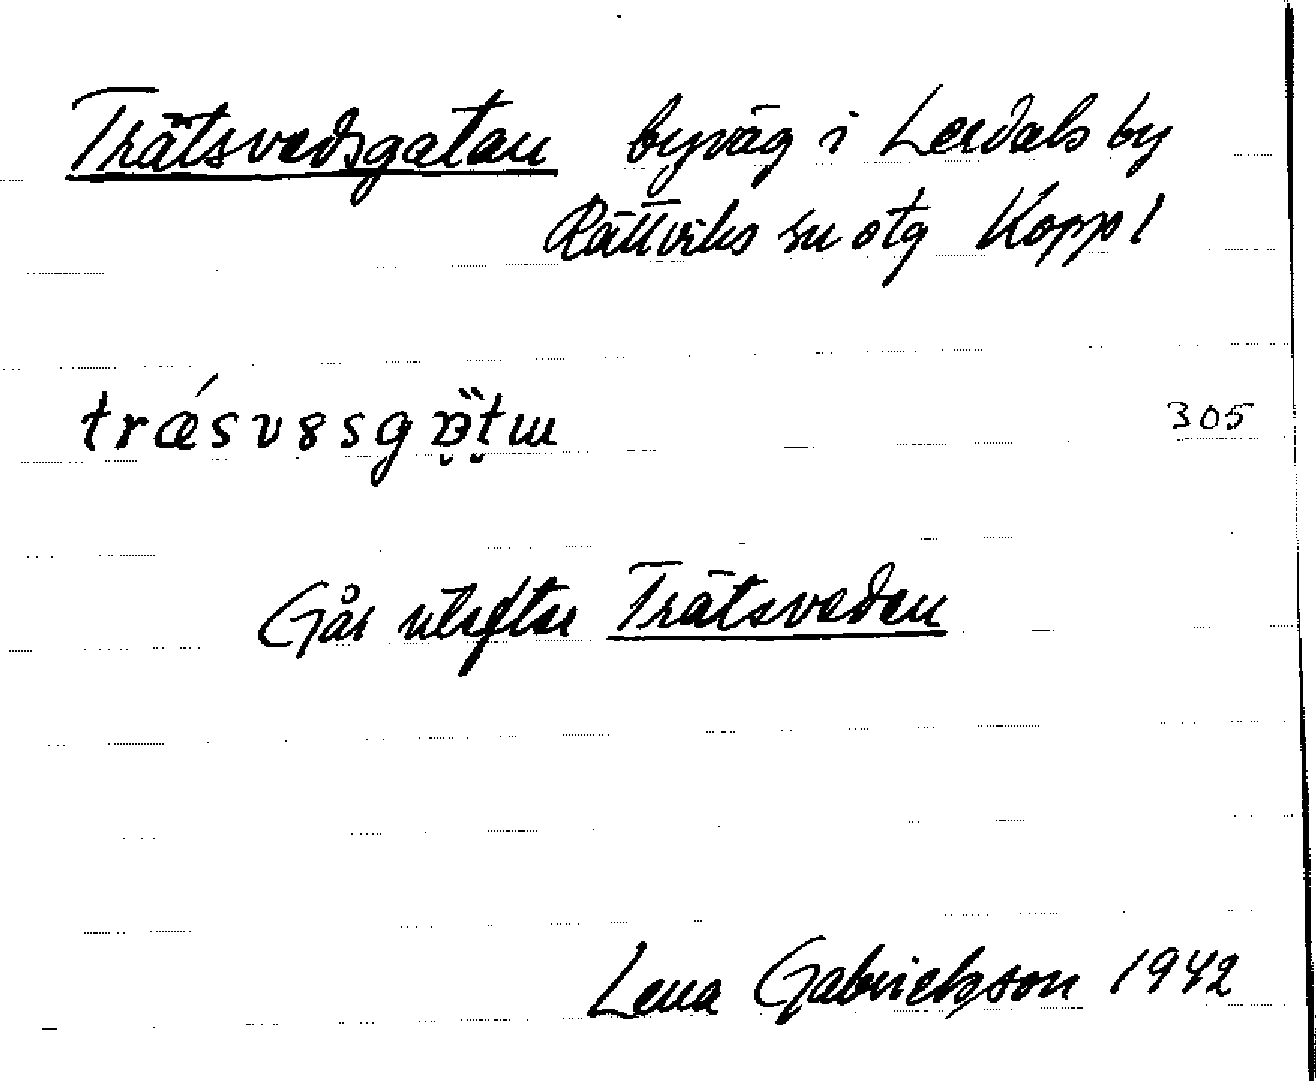 Trätsvedsgatan byväg i Lerdals by
Rättviks sn otg Koppl
305
Går utefter Trätsveden
Lena Gabrielsson 1942